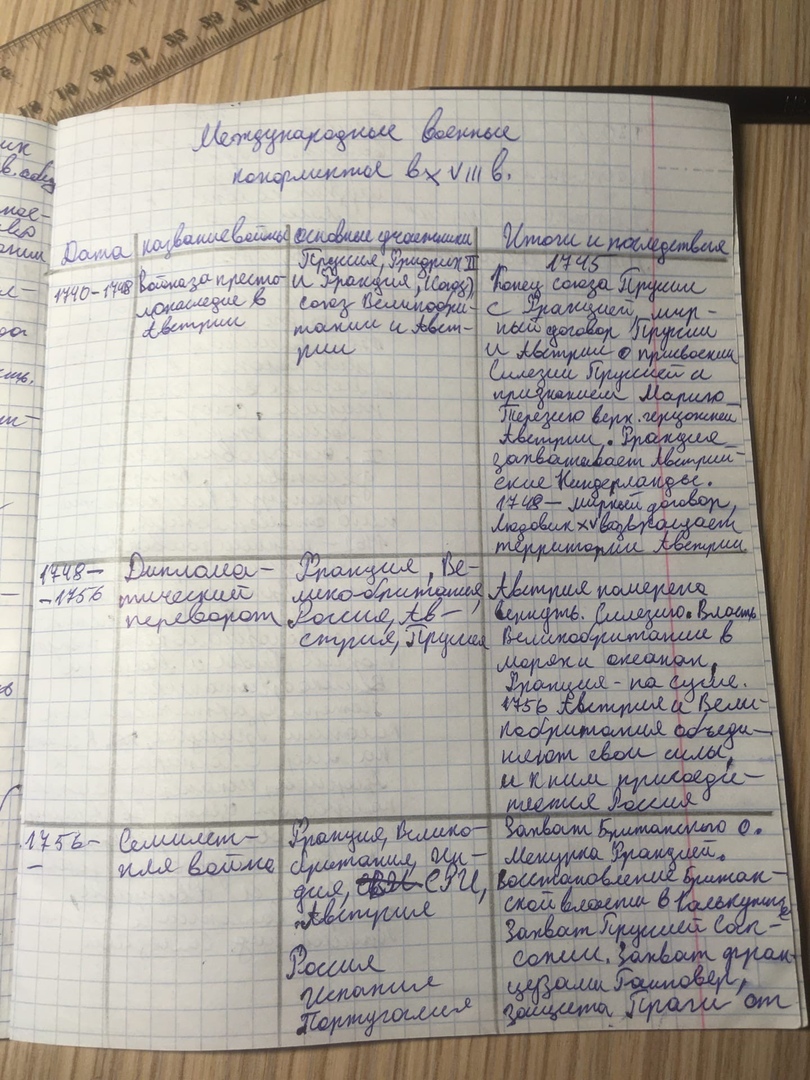 Международные военные
конфликтов в XVIII в.
Дата
название войны
основные участники
Итоги и последствия
1740-1748
Война за престо-
лонаследие в
Австрии
Пруссия, Фридрих II
и Франция, (союз)
союз Великобри-
тании и Авст-
рии
1745
Конец союза Пруссии
с Францией, мир-
ный договор Пруссии
и Австрии о присвоении
Силезии Пруссией и
признанием Марию
Терезию верх. герцогиней
Австрии. Франция
захватывает Австрий-
ские Нидерланды.
1748 - мирный договор,
Людовик XV возвращает
территории Австрии
1748-
-1756
Диплома-
тический
переворот
Франция, Ве-
ликобритания,
Россия, Ав-
стрия, Пруссия
Австрия намерена
вернуть Силезию. Власть
Великобритание в
морях и океанах,
Франция - на суше.
1756 Австрия и Вели-
кобритания объеди-
няют свои силы,
и к ним присоеди-
няется Россия
1756-
-
Семилет-
няя война
Франция, Велико-
британия, Ин-
дия, СРИ,
Австрия
Россия
Испания
Португалия
Захват Британского о.
Менурка Францией.
Восстановление Британ-
ской власти в Калькутте
Захват Пруссией Сак-
сонии. Захват фран-
цузами Ганновер,
защита Праги от